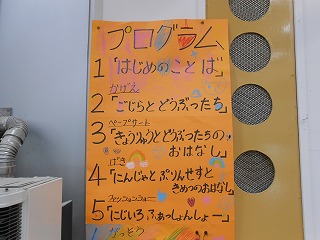 プログラム
1「はじめのことば」
かげえ
2「ごじらとどうぶつたち」
ペープサート
3「きょうりゅうとどうぶつたちの
おはなし」
げき
4「にんじゃとぷりんせすと
きめつのおはなし」
ファッションショー
5「にじいろふぁっしょんしょー」